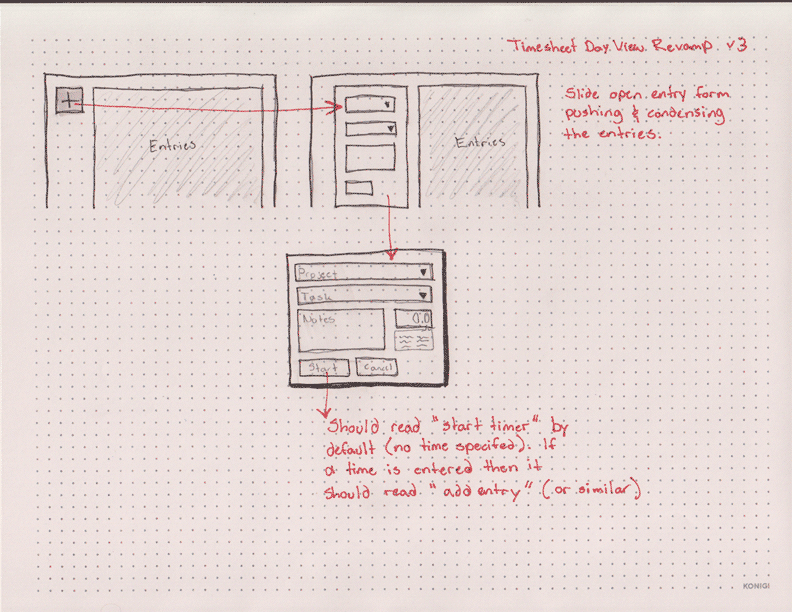 Timesheet Day View Revamp v3
Slide open entry form
pushing & condensing
the entries.
+
Entries
Entries
Project
Task
Notes
0.0
Start
Cancel
Should read "start timer" by
default (no time specified). If
a time is entered then it
should read "add entry" (or similar)
KONIGI